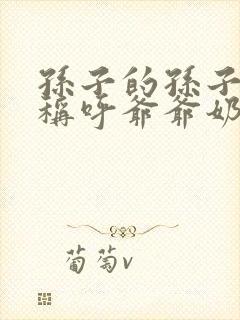 孫子的孫子
稱呼爺爺奶
葡萄v